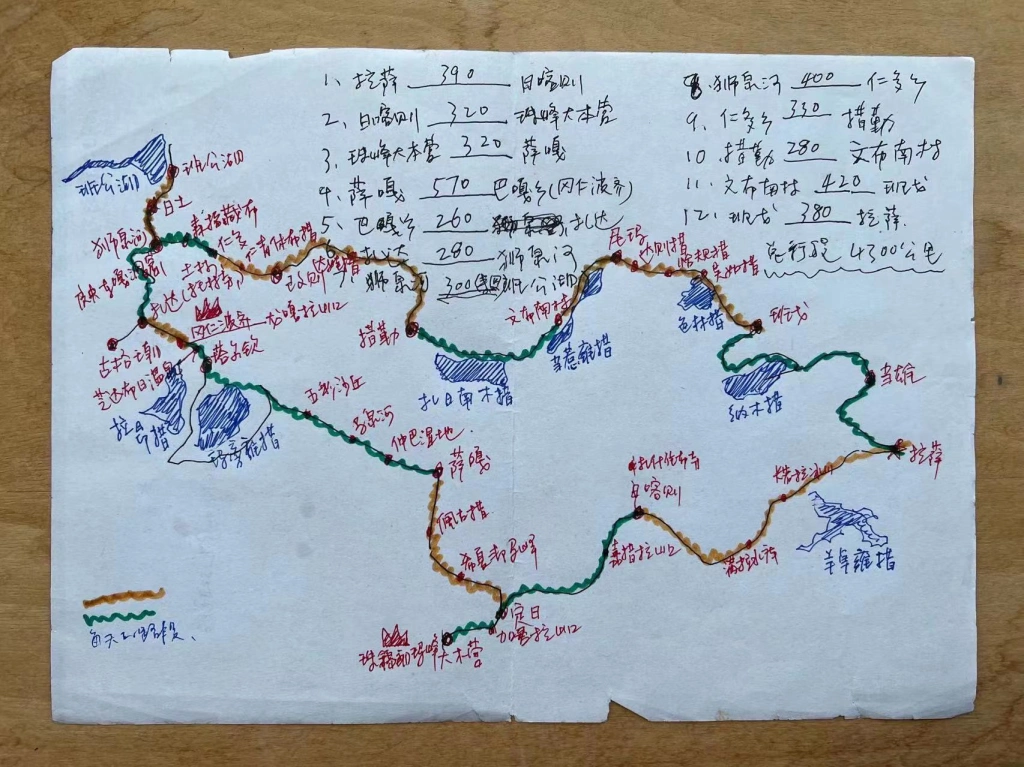 1、拉萨 390 日喀则
2、日喀则 320 珠峰大本营
3、珠峰大本营 320 萨嘎
4、萨嘎 570 巴嘎乡(冈仁波齐)
5、巴嘎乡 260 扎达
6、扎达 280 狮泉河
7、狮泉河 300 班公湖
8、狮泉河 400 仁多乡
9、仁多乡 330 措勤
10 措勤 280 文布南村
11、文布南村 420 班戈
12、班戈 380 拉萨
总行程 4300公里
班公湖
班公湖
日土
狮泉河
仁多
扎达
冈仁波齐
塔尔钦
拉昂措
玛旁雍措
五彩沙丘
仲巴湿地
萨嘎
佩古措
希夏邦马峰
定日
加乌拉山口
珠穆朗玛峰大本营
措勤
扎日南木措
文布南村
当惹雍措
尼玛
色林措
班戈
纳木措
当雄
拉萨
羊卓雍措
满拉水库
扎什伦布寺
日喀则
嘉措拉山口
每天